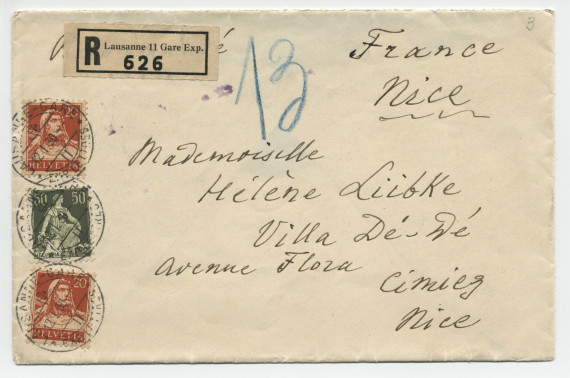 Lausanne 11 Gare Exp.
R 626
13
France
Nice
Mademoiselle
Hélène Lübke
Villa Dé-Dé
avenue Flora
Cimiez
Nice
HELVETIA
50 50
HELVETIA
20
HELVETIA
3